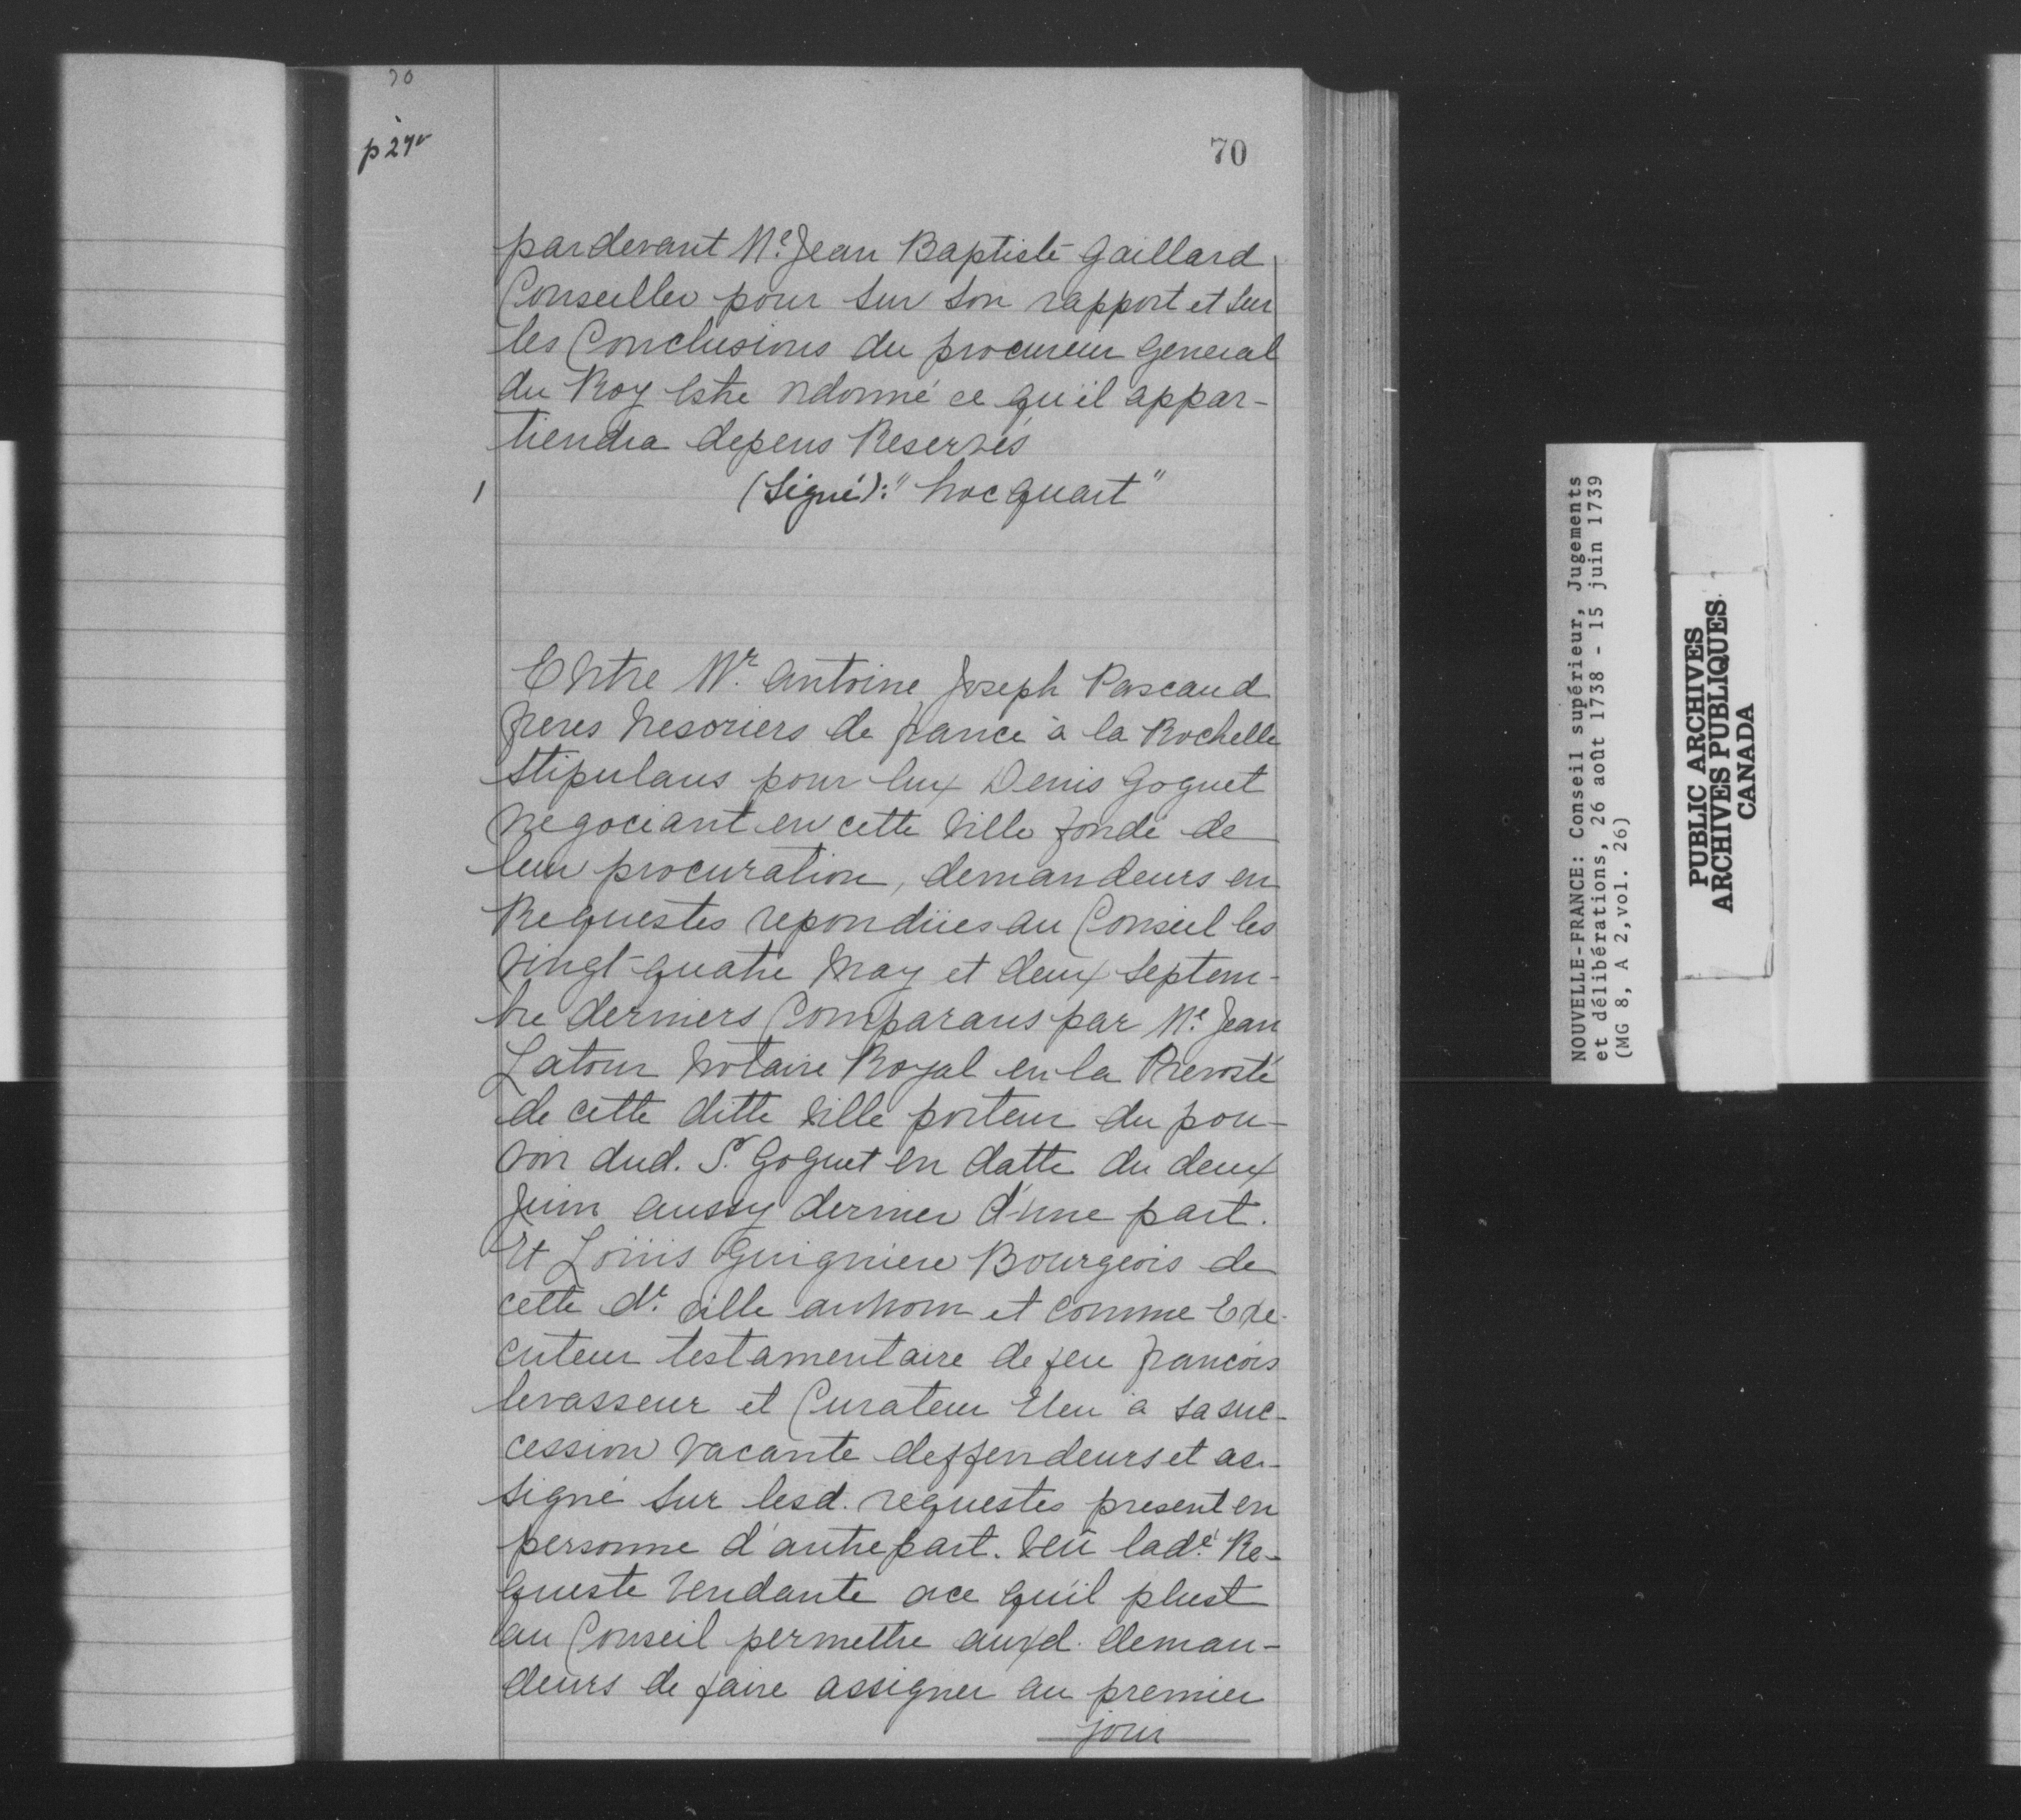 70
p 27v
70
pardevant Me. Jean Baptiste Gaillard
Conseiller pour sur son rapport et sur
les Conclusions du procureur General
du Roy Estre ordonné ce qu'il appar-
tiendra depens Reservés
(Signé): "hocquart"
Entre Mr. Antoine Joseph Pascaud
freres tresoriers de france à la Rochelle
Stipulans pour Eux Denis Goguet
negociant en cette Ville fondé de
leur procuration, demandeurs en
Requestes repondües au Conseil les
vingt-quatre may et deux Septem-
bre derniers Comparans par Me. Jean
Latour Notaire Royal en la Prevosté
de cette ditte Ville porteur du pou-
voir dud. Sr. Goguet en datte du deux
Juin aussy dernier d'une part.
Et Loüis Guigniere Bourgeois de
cette de. ville au nom et comme Exe-
cuteur testamentaire de feu francois
levasseur et Curateur Eleu à sa suc-
cession vacante deffendeurs et as-
signé sur lesd. requestes present en
personne d'autre part. Veü lade. Re-
queste tendante ace qu'il plust
au Conseil permettre auxd. deman-
deurs de faire assigner au premier
jour
NOUVELLE-FRANCE: Conseil supérieur, Jugements
et délibérations, 26 août 1738 - 15 juin 1739
(MG 8, A 2,vol. 26)
PUBLIC ARCHIVES
ARCHIVES PUBLIQUES
CANADA